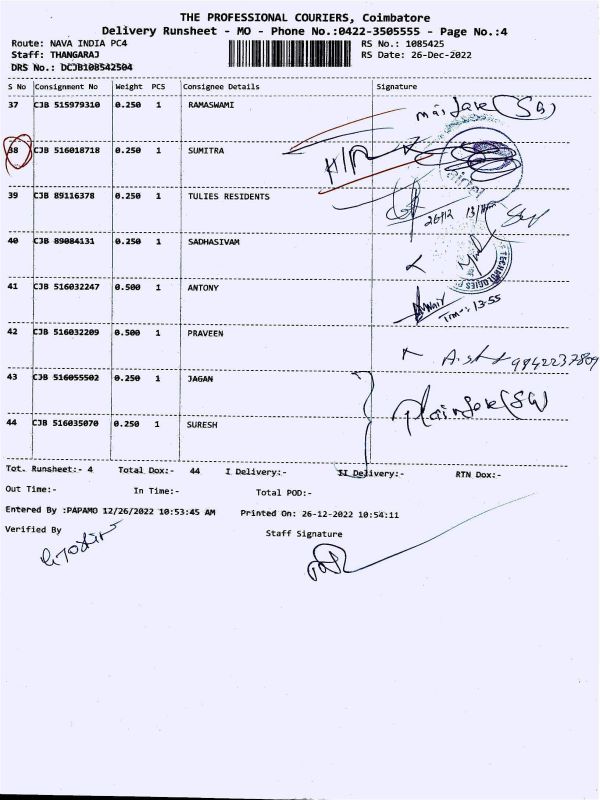 THE PROFESSIONAL COURIERS, Coimbatore
Delivery Runsheet - MO - Phone No.:0422-3505555 - Page No.:4
Route: NAVA INDIA PC4 RS No.: 1085425
Staff: THANGARAJ RS Date: 26-Dec-2022
DRS No.: DCJB108542504
S No Consignment No Weight PCS Consignee Details Signature
37 CJB 515979310 0.250 1 RAMASWAMI (SG)
38 CJB 516018718 0.250 1 SUMITRA H/P airtel
39 CJB 89116378 0.250 1 TULIES RESIDENTS 26/12
40 CJB 89084131 0.250 1 SADHASIVAM TECHNOLOGIES
41 CJB 516032247 0.500 1 ANTONY 13-55
42 CJB 516032209 0.500 1 PRAVEEN 9942237809
43 CJB 516055502 0.250 1 JAGAN (SG)
44 CJB 516035070 0.250 1 SURESH
Tot. Runsheet:- 4 Total Dox:- 44 I Delivery:- II Delivery:- RTN Dox:-
Out Time:- In Time:- Total POD:-
Entered By :PAPAMO 12/26/2022 10:53:45 AM Printed On: 26-12-2022 10:54:11
Verified By Staff Signature